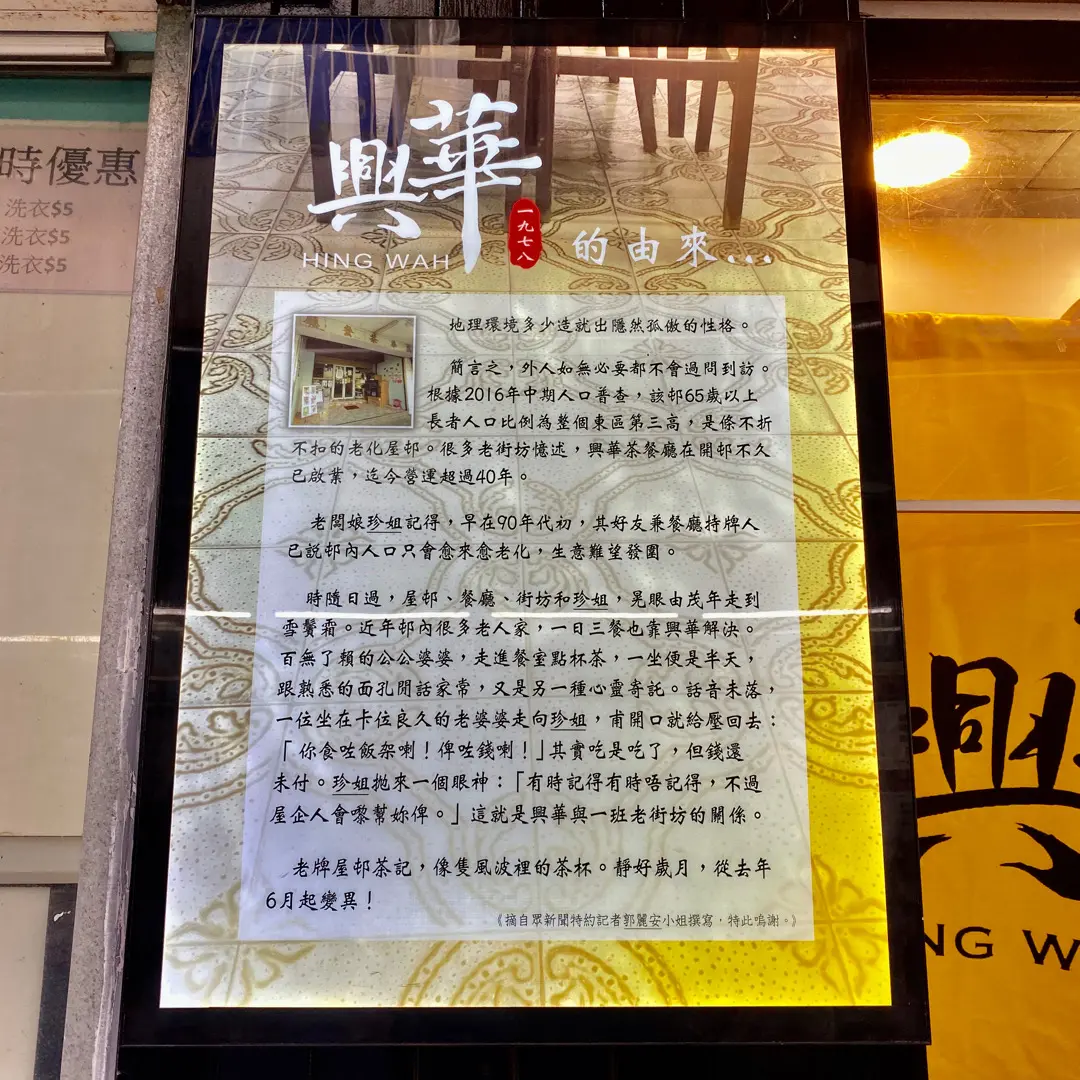 時優惠
洗衣$5
洗衣$5
洗衣$5
興華
一九七八
HING WAH
的由來...
地理環境多少造就出隱然孤傲的性格。
簡言之，外人如無必要都不會過問到訪。
根據2016年中期人口普查，該邨65歲以上
長者人口比例為整個東區第三高，是條不折
不扣的老化屋邨。很多老街坊憶述，興華茶餐廳在開邨不久
已啟業，迄今營運超過40年。
老闆娘珍姐記得，早在90年代初，其好友兼餐廳持牌人
已說邨內人口只會愈來愈老化，生意難望發圍。
時隨日過，屋邨、餐廳、街坊和珍姐，晃眼由茂年走到
雪鬢霜。近年邨內很多老人家，一日三餐也靠興華解決。
百無了賴的公公婆婆，走進餐室點杯茶，一坐便是半天，
跟熟悉的面孔閒話家常，又是另一種心靈寄託。話音未落，
一位坐在卡位良久的老婆婆走向珍姐，甫開口就給壓回去：
「你食咗飯架喇！俾咗錢喇！」其實吃是吃了，但錢還
未付。珍姐拋來一個眼神：「有時記得有時唔記得，不過
屋企人會嚟幫妳俾。」這就是興華與一班老街坊的關係。
老牌屋邨茶記，像隻風波裡的茶杯。靜好歲月，從去年
6月起變異！
《摘自眾新聞特約記者郭麗安小姐撰寫，特此鳴謝。》
興
NG W